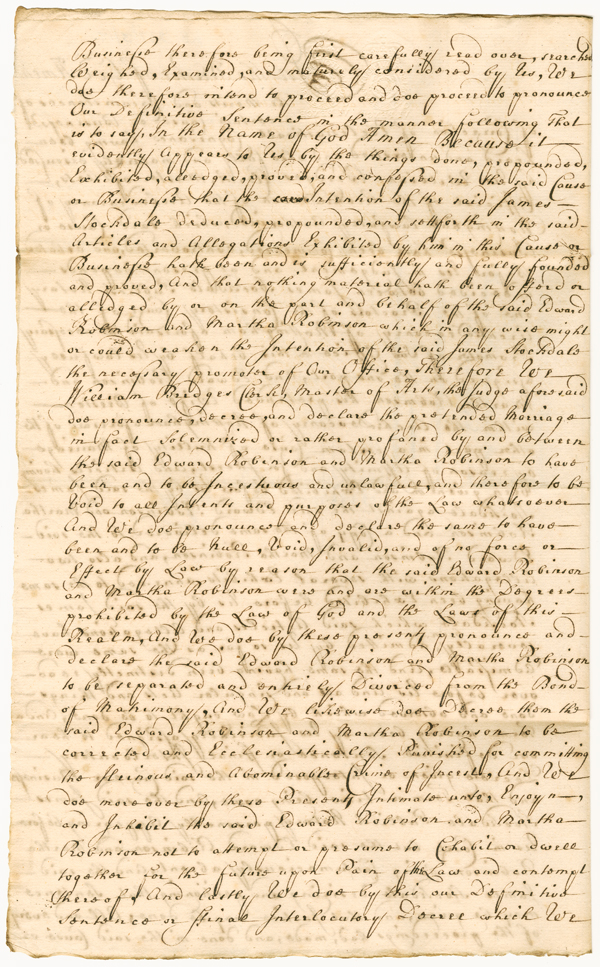 Businesse therefore being first carefully read over, searched
Weighed, Examined, and maturely considered by Us, We
doe therefore intend to proceed and doe proceed to pronounce
Our Definitive Sentence in the manner following That
is to say, In the Name of God Amen Because it
evidently appears to Us by the things done, propounded,
Exhibited, alledged, proved, and confessed in the said Cause
or Businesse that the Intention of the said James
Stockdale deduced, propounded, and settforth in the said
Articles and Allegations Exhibited by him in this Cause or
Businesse hath been and is sufficiently and fully founded
and proved, And that nothing material hath been offer'd or
alledged by or on the part and behalf of the said Edward
Robinson and Martha Robinson which in any wise might
or could weaken the Intention of the said James Stockdale
the necessary promoter of Our Office, Therefore We
William Bridges Clerk, Master of Arts, the Judge aforesaid
doe pronounce, decree, and declare the pretended Marriage
in fact Solemnized or rather profaned by and between
the said Edward Robinson and Martha Robinson to have
been and to be Incestuous and unlawfull, and therefore to be
Void to all Intents and purposes of the Law whatsoever
And We doe pronounce and declare the same to have
been and to be Null, Void, Invalid, and of no force or
Effect by Law by reason that the said Edward Robinson
and Martha Robinson were and are within the Degrees
prohibited by the Law of God and the Laws of this
Realm, And We doe by these presents pronounce and
declare the said Edward Robinson and Martha Robinson
to be separated and entirely Divorced from the Bond
of Matrimony, And We likewise doe decree them the
said Edward Robinson and Martha Robinson to be
corrected and Ecclesiastically Punished for committing
the Heinous and Abominable Crime of Incest, And We
doe moreover by these Presents Intimate unto, Enjoyn,
and Inhibit the said Edward Robinson and Martha
Robinson not to attempt or presume to Cohabit or dwell
together for the future upon Pain of the Law and contempt
thereof, And lastly We doe by this our Definitive
Sentence or ffinal Interlocutory Decree which We